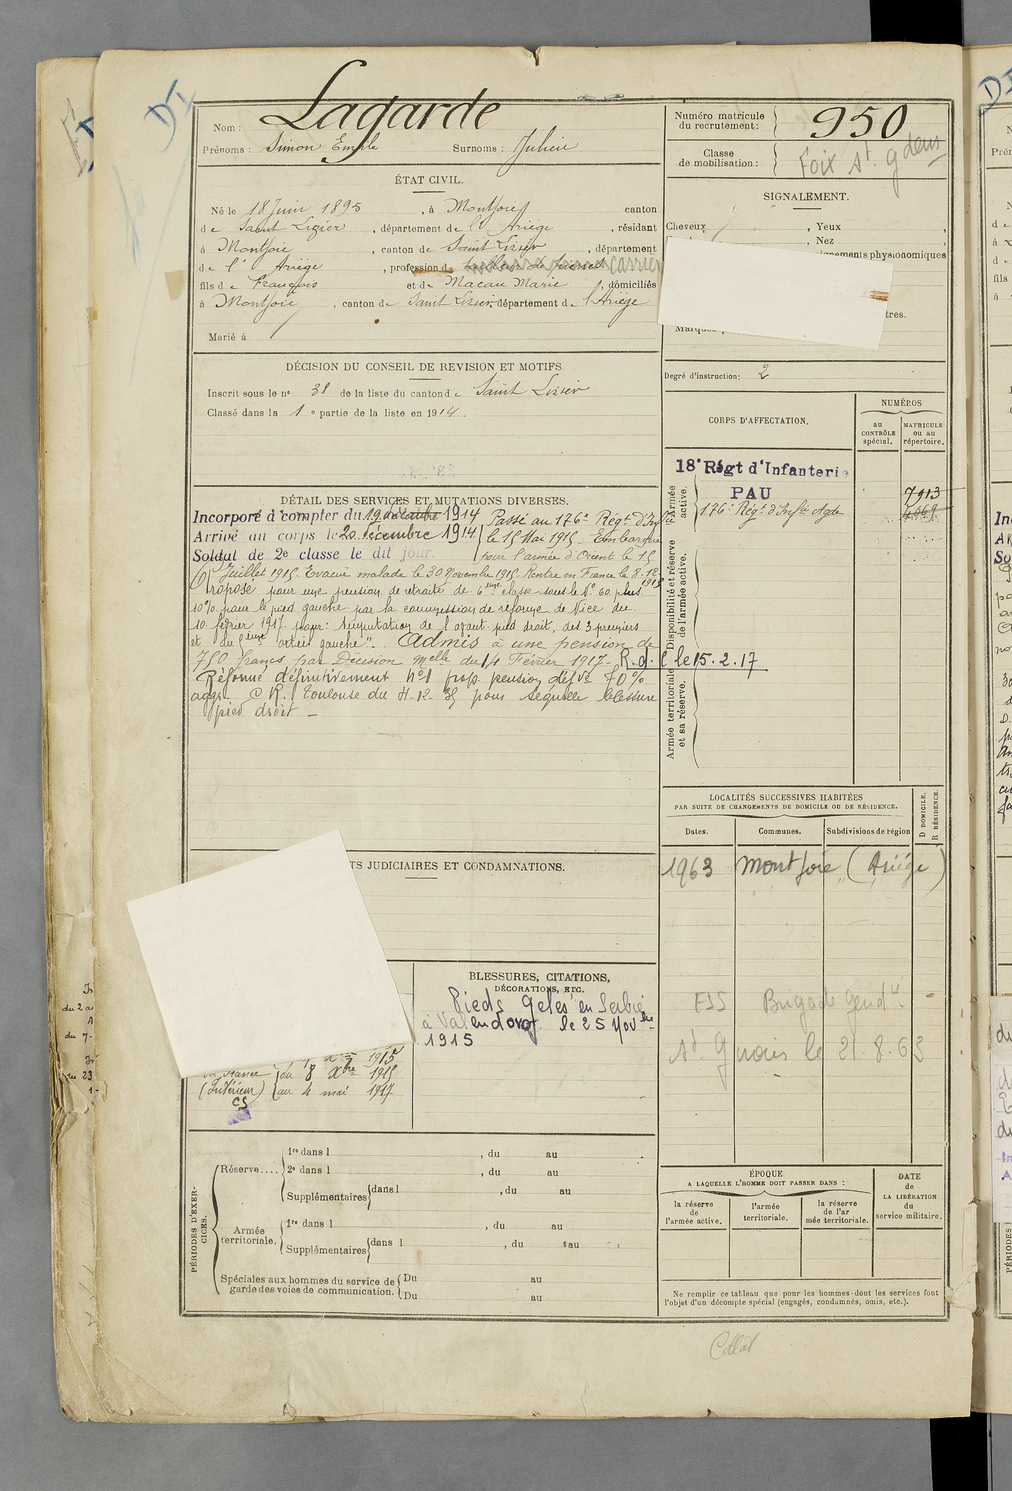 Lagarde
Nom :
Prénoms : Simon Emile Surnoms : Julien
Numéro matricule
du recrutement : 950
Classe
de mobilisation : Foix St. gdens
ÉTAT CIVIL.
Né le 18 Juin 1895, à Montjoie canton
de Saint Lizier, département de l' Ariège, résidant
à Montjoie, canton de Saint Lizier, département
de l' Ariège, profession de carrier
fils de François et de Macau Marie, domiciliés
à Montjoie, canton de Saint Lizier, département de l'Ariège
Marié à
SIGNALEMENT.
Cheveux , Yeux ,
, Nez ,
physionomiques
tres.
Degré d'instruction : 2
DÉCISION DU CONSEIL DE REVISION ET MOTIFS.
Inscrit sous le n° 38 de la liste du canton de Saint Lizier
Classé dans la 1 e partie de la liste en 1914.
CORPS D'AFFECTATION.
NUMÉROS
au
CONTRÔLE
spécial.
MATRICULE
ou au
répertoire.
Armée
active.
18e Régt d'Infanterie
PAU 7913
176e Régt d'Infie Agde
Disponibilité et réserve
de l'armée active.
Armée territoriale
et sa réserve.
DÉTAIL DES SERVICES ET MUTATIONS DIVERSES.
Incorporé à compter du 19 décembre 1914 Passé au 176e Régt d'Infie
Arrivé au corps le 20 décembre 1914 le 15 Mai 1915 Embarqué
Soldat de 2e classe le dit jour. pour l'armée d'Orient le 15
Juillet 1915. Evacué malade le 30 Novembre 1915. Rentré en France le 8.12
1915
Proposé pour une pension de retraite de 6eme classe sous le N° 60 plus
10% pour le pied gauche par la commission de réforme de Nice du
10 février 1917 pour : Amputation de l'avant pied droit, des 3 premiers
et du 5eme orteil gauche". Admis à une pension de
750 francs par Décision Melle du 14 Février 1917. R.d.C le 15.2.17
Réformé définitivement n°1 prop. pension défve 70%
aggr. C.R. Toulouse du 4-12-35 pour séquelle blessure
pied droit -
LOCALITÉS SUCCESSIVES HABITÉES
PAR SUITE DE CHANGEMENTS DE DOMICILE OU DE RÉSIDENCE.
Dates. Communes. Subdivisions de région
D DOMICILE.
R RÉSIDENCE.
1963 Montjoie (Ariège)
Brigade Gend
St. Girons le 21.8.63
TS JUDICIAIRES ET CONDAMNATIONS.
BLESSURES, CITATIONS,
DÉCORATIONS, ETC.
Pieds Gelés en Serbie
à Valandovo le 25 Novbre
1915
1915
en France du 8 Xbre 1915
(Intérieur) au 4 mai 1917
CS
PÉRIODES D'EXER-
CICES.
Réserve....
1re dans l , du au
2e dans l , du au
Supplémentaires dans l , du au
Armée
territoriale.
1re dans l , du au
Supplémentaires dans l , du au
Spéciales aux hommes du service de
garde des voies de communication.
Du au
Du au
ÉPOQUE
A LAQUELLE L'HOMME DOIT PASSER DANS :
la réserve
de
l'armée active.
l'armée
territoriale.
la réserve
de l'ar
mée territoriale.
DATE
de
LA LIBÉRATION
du
service militaire.
Ne remplir ce tableau que pour les hommes dont les services font
l'objet d'un décompte spécial (engagés, condamnés, omis, etc.).